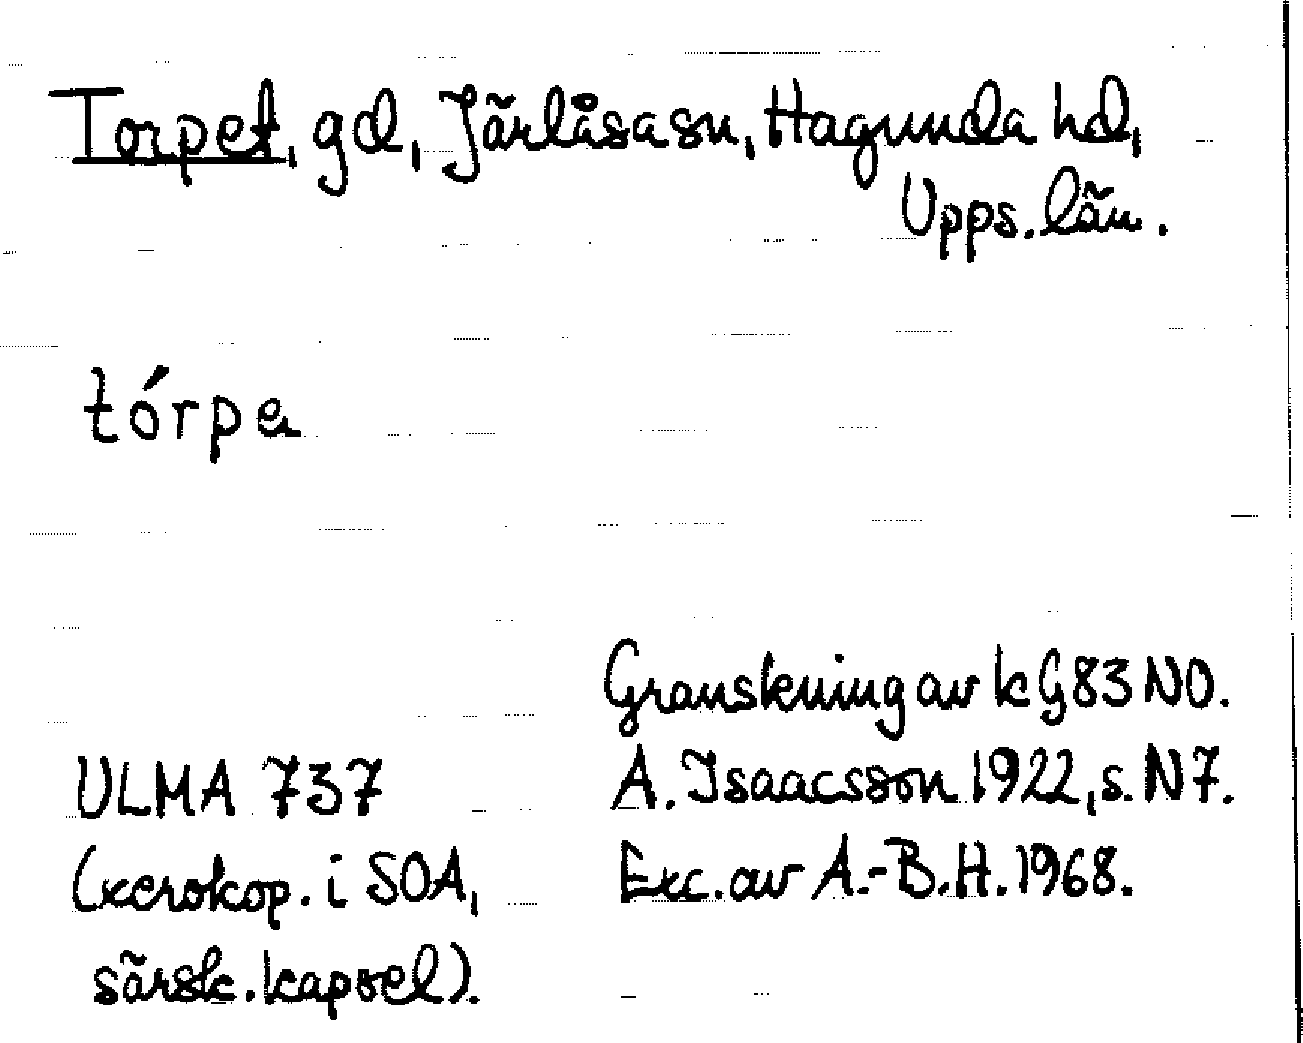 Torpet, gd, Järlåsa sn, Hagunda hd,
Upps. län.
tórpa
Granskning av k G83 NO.
ULMA 737
A. Isaacsson 1922, s. N7.
(xerokop. i SOA,
Exc. av A.-B.H. 1968.
särsk. kapsel).